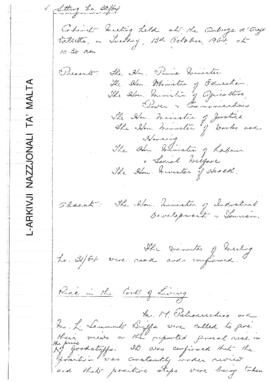 L-ARKIVJI NAZZJONALI TA' MALTA
Sitting No. 30/64
Cabinet Meeting held at the Auberge d'Aragon
Valletta, on Tuesday, 13th October, 1964 at
10.30 am
Present: The Hon. Prime Minister
The Hon. Minister of Education
The Hon. Minister of Agriculture,
Power & Communications
The Hon. Minister of Justice
The Hon. Minister of Works and
Housing
The Hon. Minister of Labour
& Social Welfare
The Hon. Minister of Health
Absent: The Hon. Minister of Industrial
Development & Tourism.
The Minutes of Meeting
No. were read and confirmed
Rise in the Cost of Living
Mr. M. and
Mr. L. were called to give
their views on the reported general rise in
the price of foodstuffs. It was confirmed that the
position was constantly under review
and that positive steps were being taken